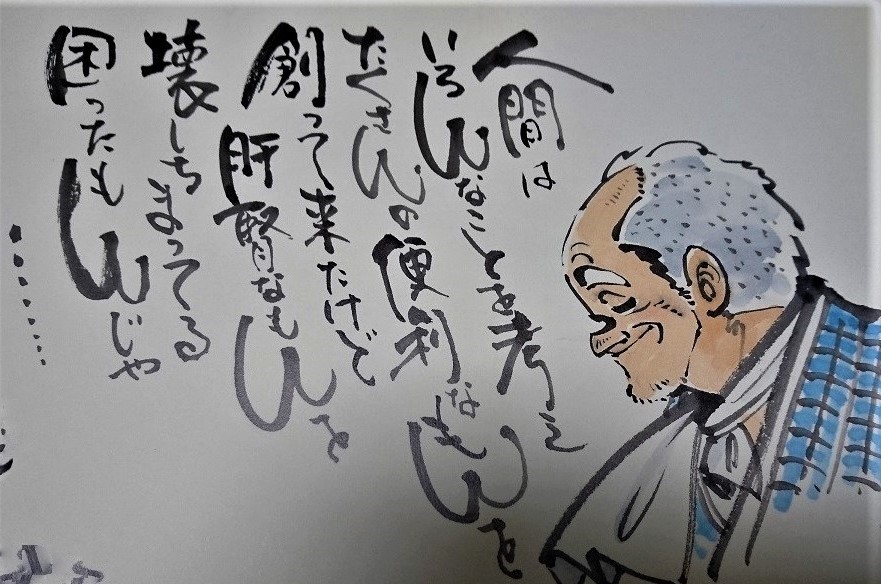 人間は
いろんなことを考え
たくさんの便利なもんを
創って来たけど
肝腎なもんを
壊しちまってる
困ったもんじゃ
・・・・・・